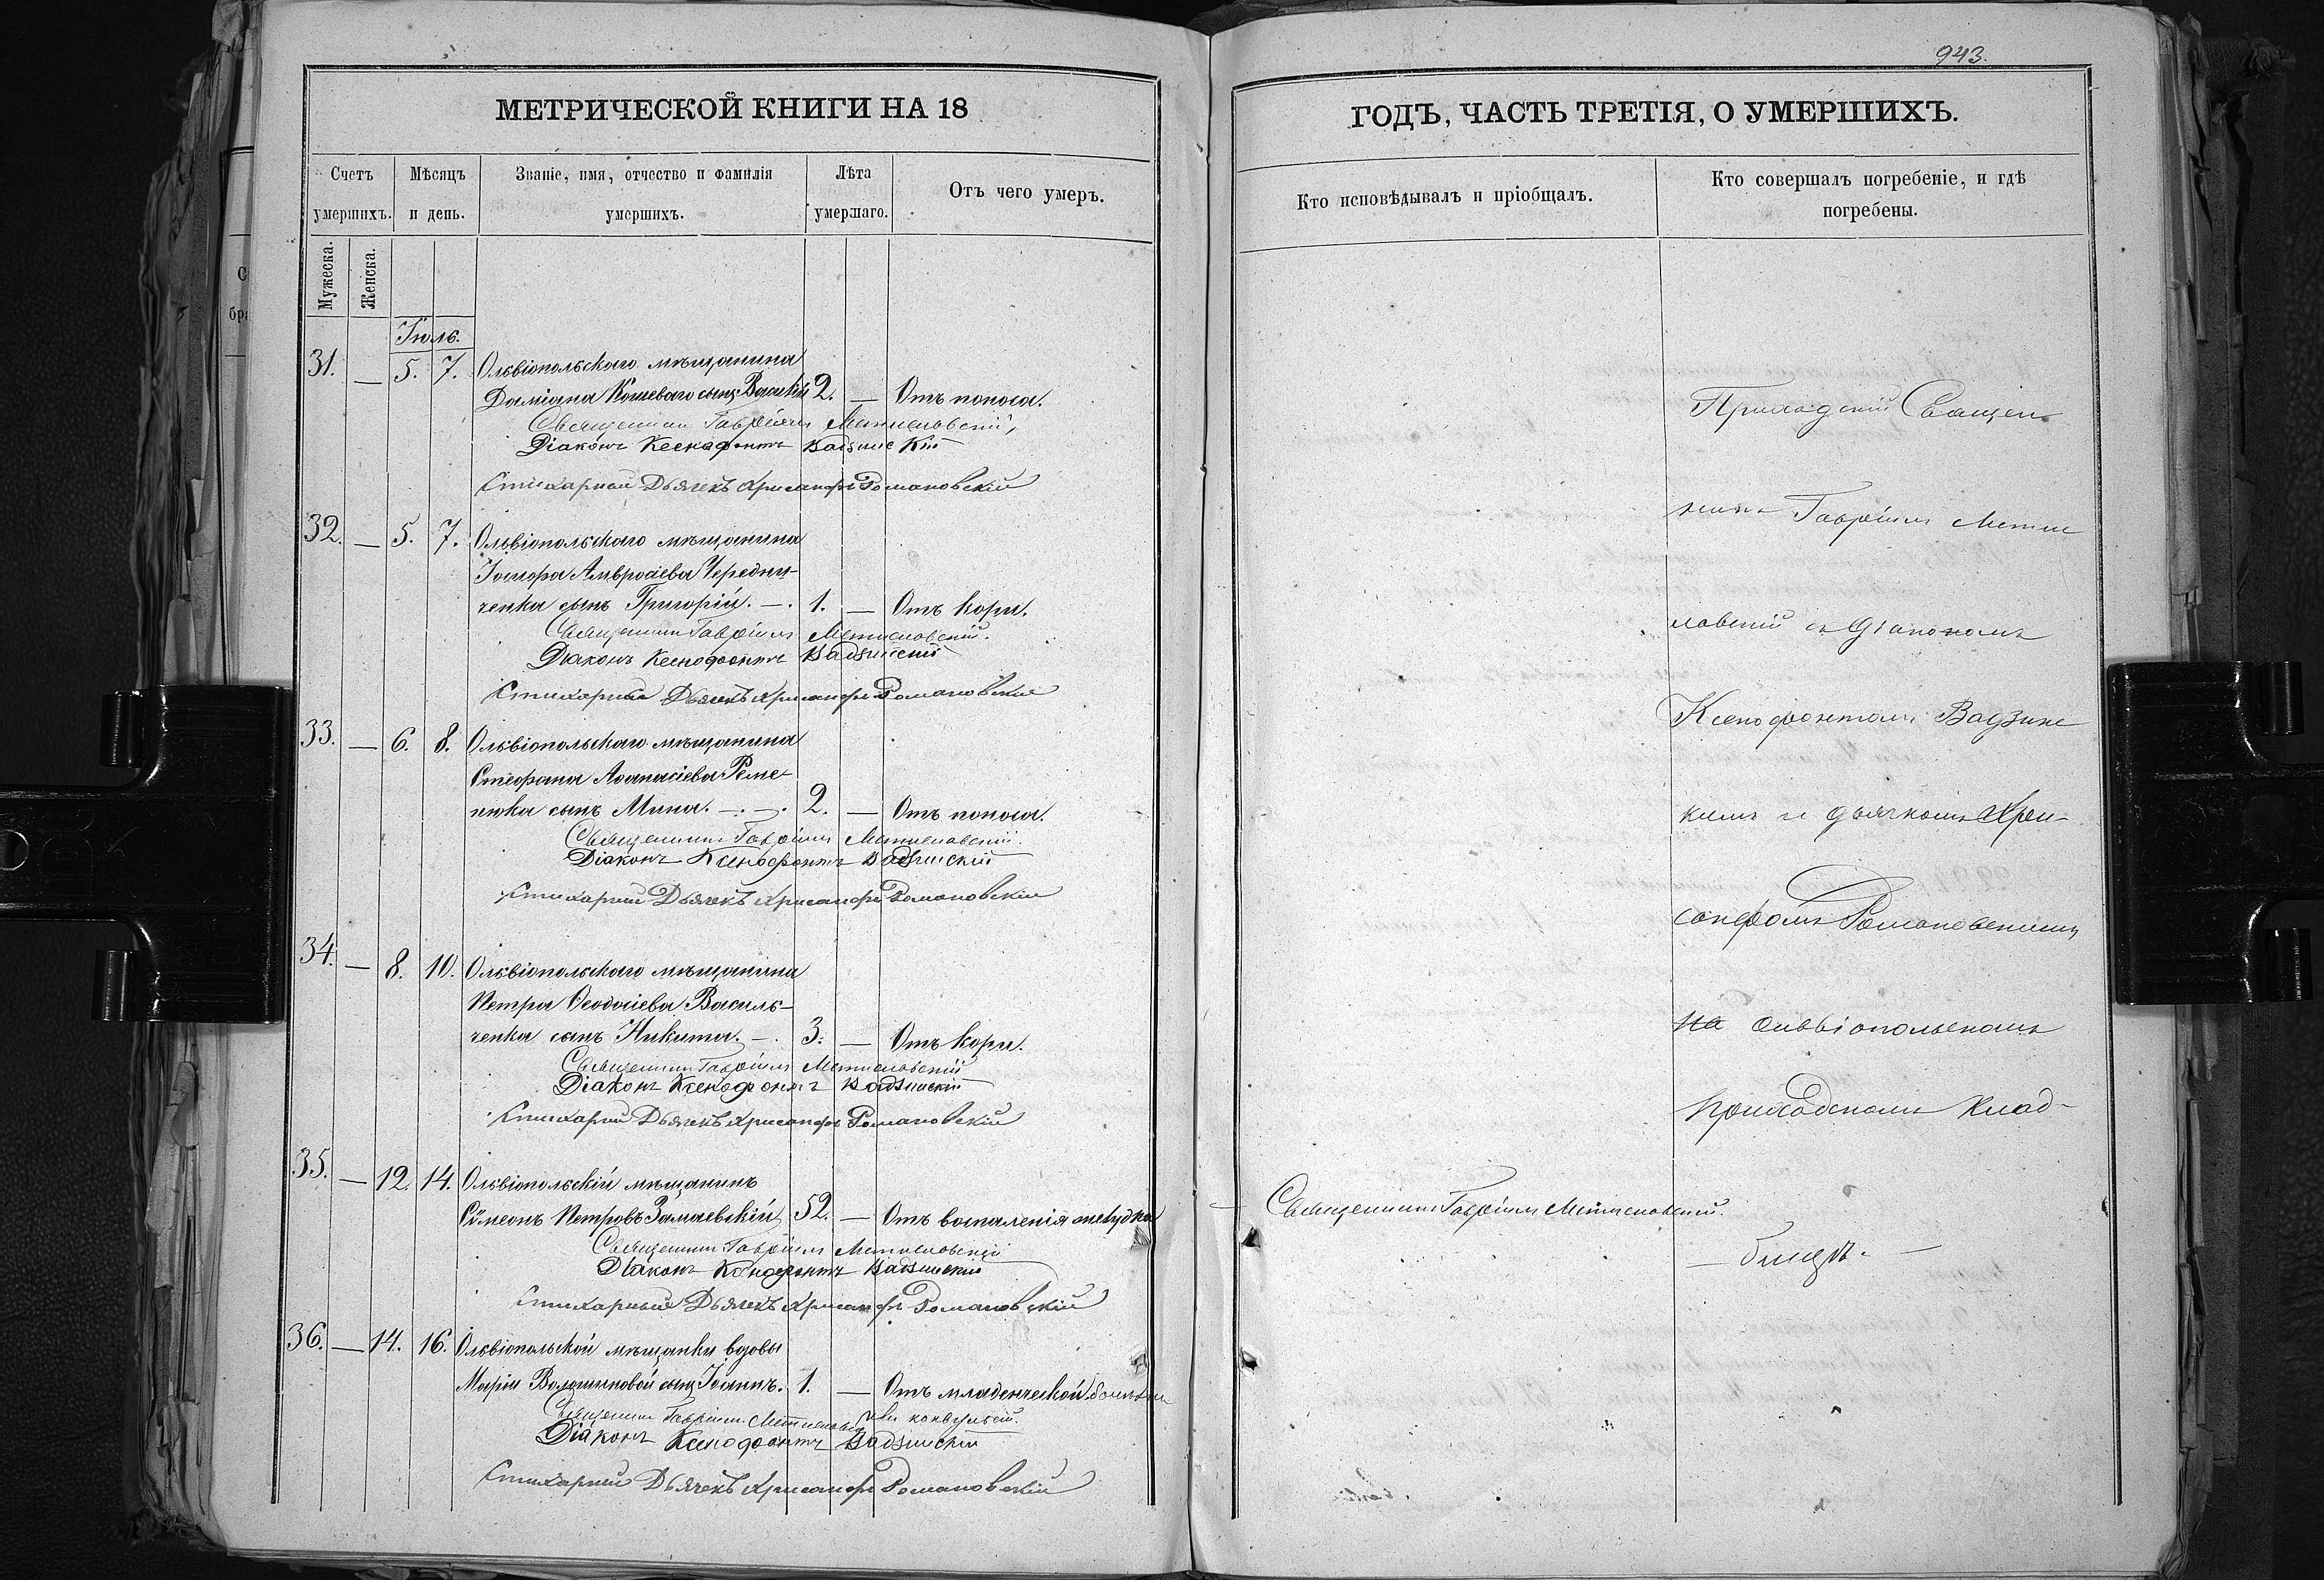 943.
МЕТРИЧЕСКОЙ КНИГИ НА 18
Счетъ умершихъ.
Мѣсяцъ и день.
Званіе, имя, отчество и фамилія умершихъ.
Лѣта умершаго.
Отъ чего умеръ.
Мужеска.
Женска.
Іюль.
31. — 5. 7. Ольвіопольскаго мѣщанина
Даміана Кошеваго сынъ Василій 2. — Отъ поноса.
Священникъ Гавріилъ Мстиславскій,
Діаконъ Ксенофонтъ Вадзинскій
Стихарный Дьячекъ Хрисанфъ Романовскій
32. — 5. 7. Ольвіопольскаго мѣщанина
Амвросіева Чередни-
ченка сынъ Григорій. — . 1. — Отъ кори.
Священникъ Гавріилъ Мстиславскій.
Діаконъ Ксенофонтъ Вадзинскій
Стихарный Дьячекъ Хрисанфъ Романовскій
33. — 6. 8. Ольвіопольскаго мѣщанина
Стефана Аѳанасіева Реме-
нюка сынъ Мина. — . — . 2. — Отъ поноса.
Священникъ Гавріилъ Мстиславскій.
Діаконъ Ксенофонтъ Вадзинскій
Стихарный Дьячекъ Хрисанфъ Романовскій
34. — 8. 10. Ольвіопольскаго мѣщанина
Петра Ѳеодосіева Василь-
ченка сынъ Никита. — . 3. — Отъ кори.
Священникъ Гавріилъ Мстиславскій
Діаконъ Ксенофонтъ Вадзинскій
Стихарный Дьячекъ Хрисанфъ Романовскій
35. — 12. 14. Ольвіопольскій мѣщанинъ
Сѵмеонъ Петровъ Замаевскій 52. — Отъ воспаленія желудка
Священникъ Гавріилъ Мстиславскій
Діаконъ Ксенофонтъ Вадзинскій
Стихарный Дьячекъ Хрисанфъ Романовскій
36. — 14. 16. Ольвіопольской мѣщанки вдовы
Маріи Волошиновой сынъ Іоаннъ. 1. — Отъ младенческой болѣзни
или конвульсій.
Священникъ Гавріилъ Мстиславскій
Діаконъ Ксенофонтъ Вадзинскій
Стихарный Дьячекъ Хрисанфъ Романовскій
ГОДЪ, ЧАСТЬ ТРЕТІЯ, О УМЕРШИХЪ.
Кто исповѣдывалъ и пріобщалъ.
Кто совершалъ погребеніе, и гдѣ погребены.
Священникъ Гавріилъ Мстиславскій.
Приходскій Священ-
никъ Гавріилъ Мсти
славскій съ Діакономъ
Ксенофонтомъ Вадзинс
кимъ и дьячкомъ Хри-
санфомъ Романовскимъ
на Ольвіопольскомъ
приходскомъ клад-
— бищѣ. —